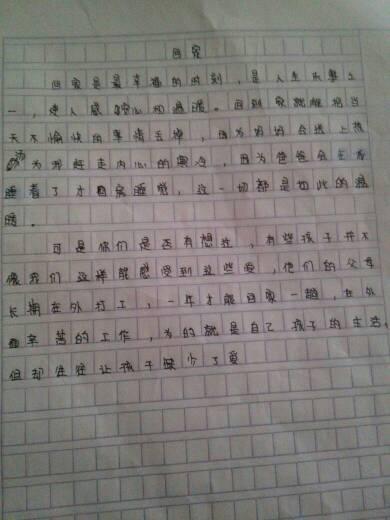 回家
回家是最幸福的时刻,是人生乐事之
一,使人感到安心和温暖。回到家就能把当
天不愉快的事情丢掉,因为妈妈会递上热
汤为我赶走内心的寒冷,因为爸爸会在我
睡着了才自己去睡觉,这一切都是如此的温
暖。
可是你们是否有想过,有些孩子并不
像我们这样能感受到这些爱,他们的父母
长期在外打工,一年才能回家一趟,在外
辛苦的工作,为的就是自己孩子的生活,
但却往往让孩子缺少了爱